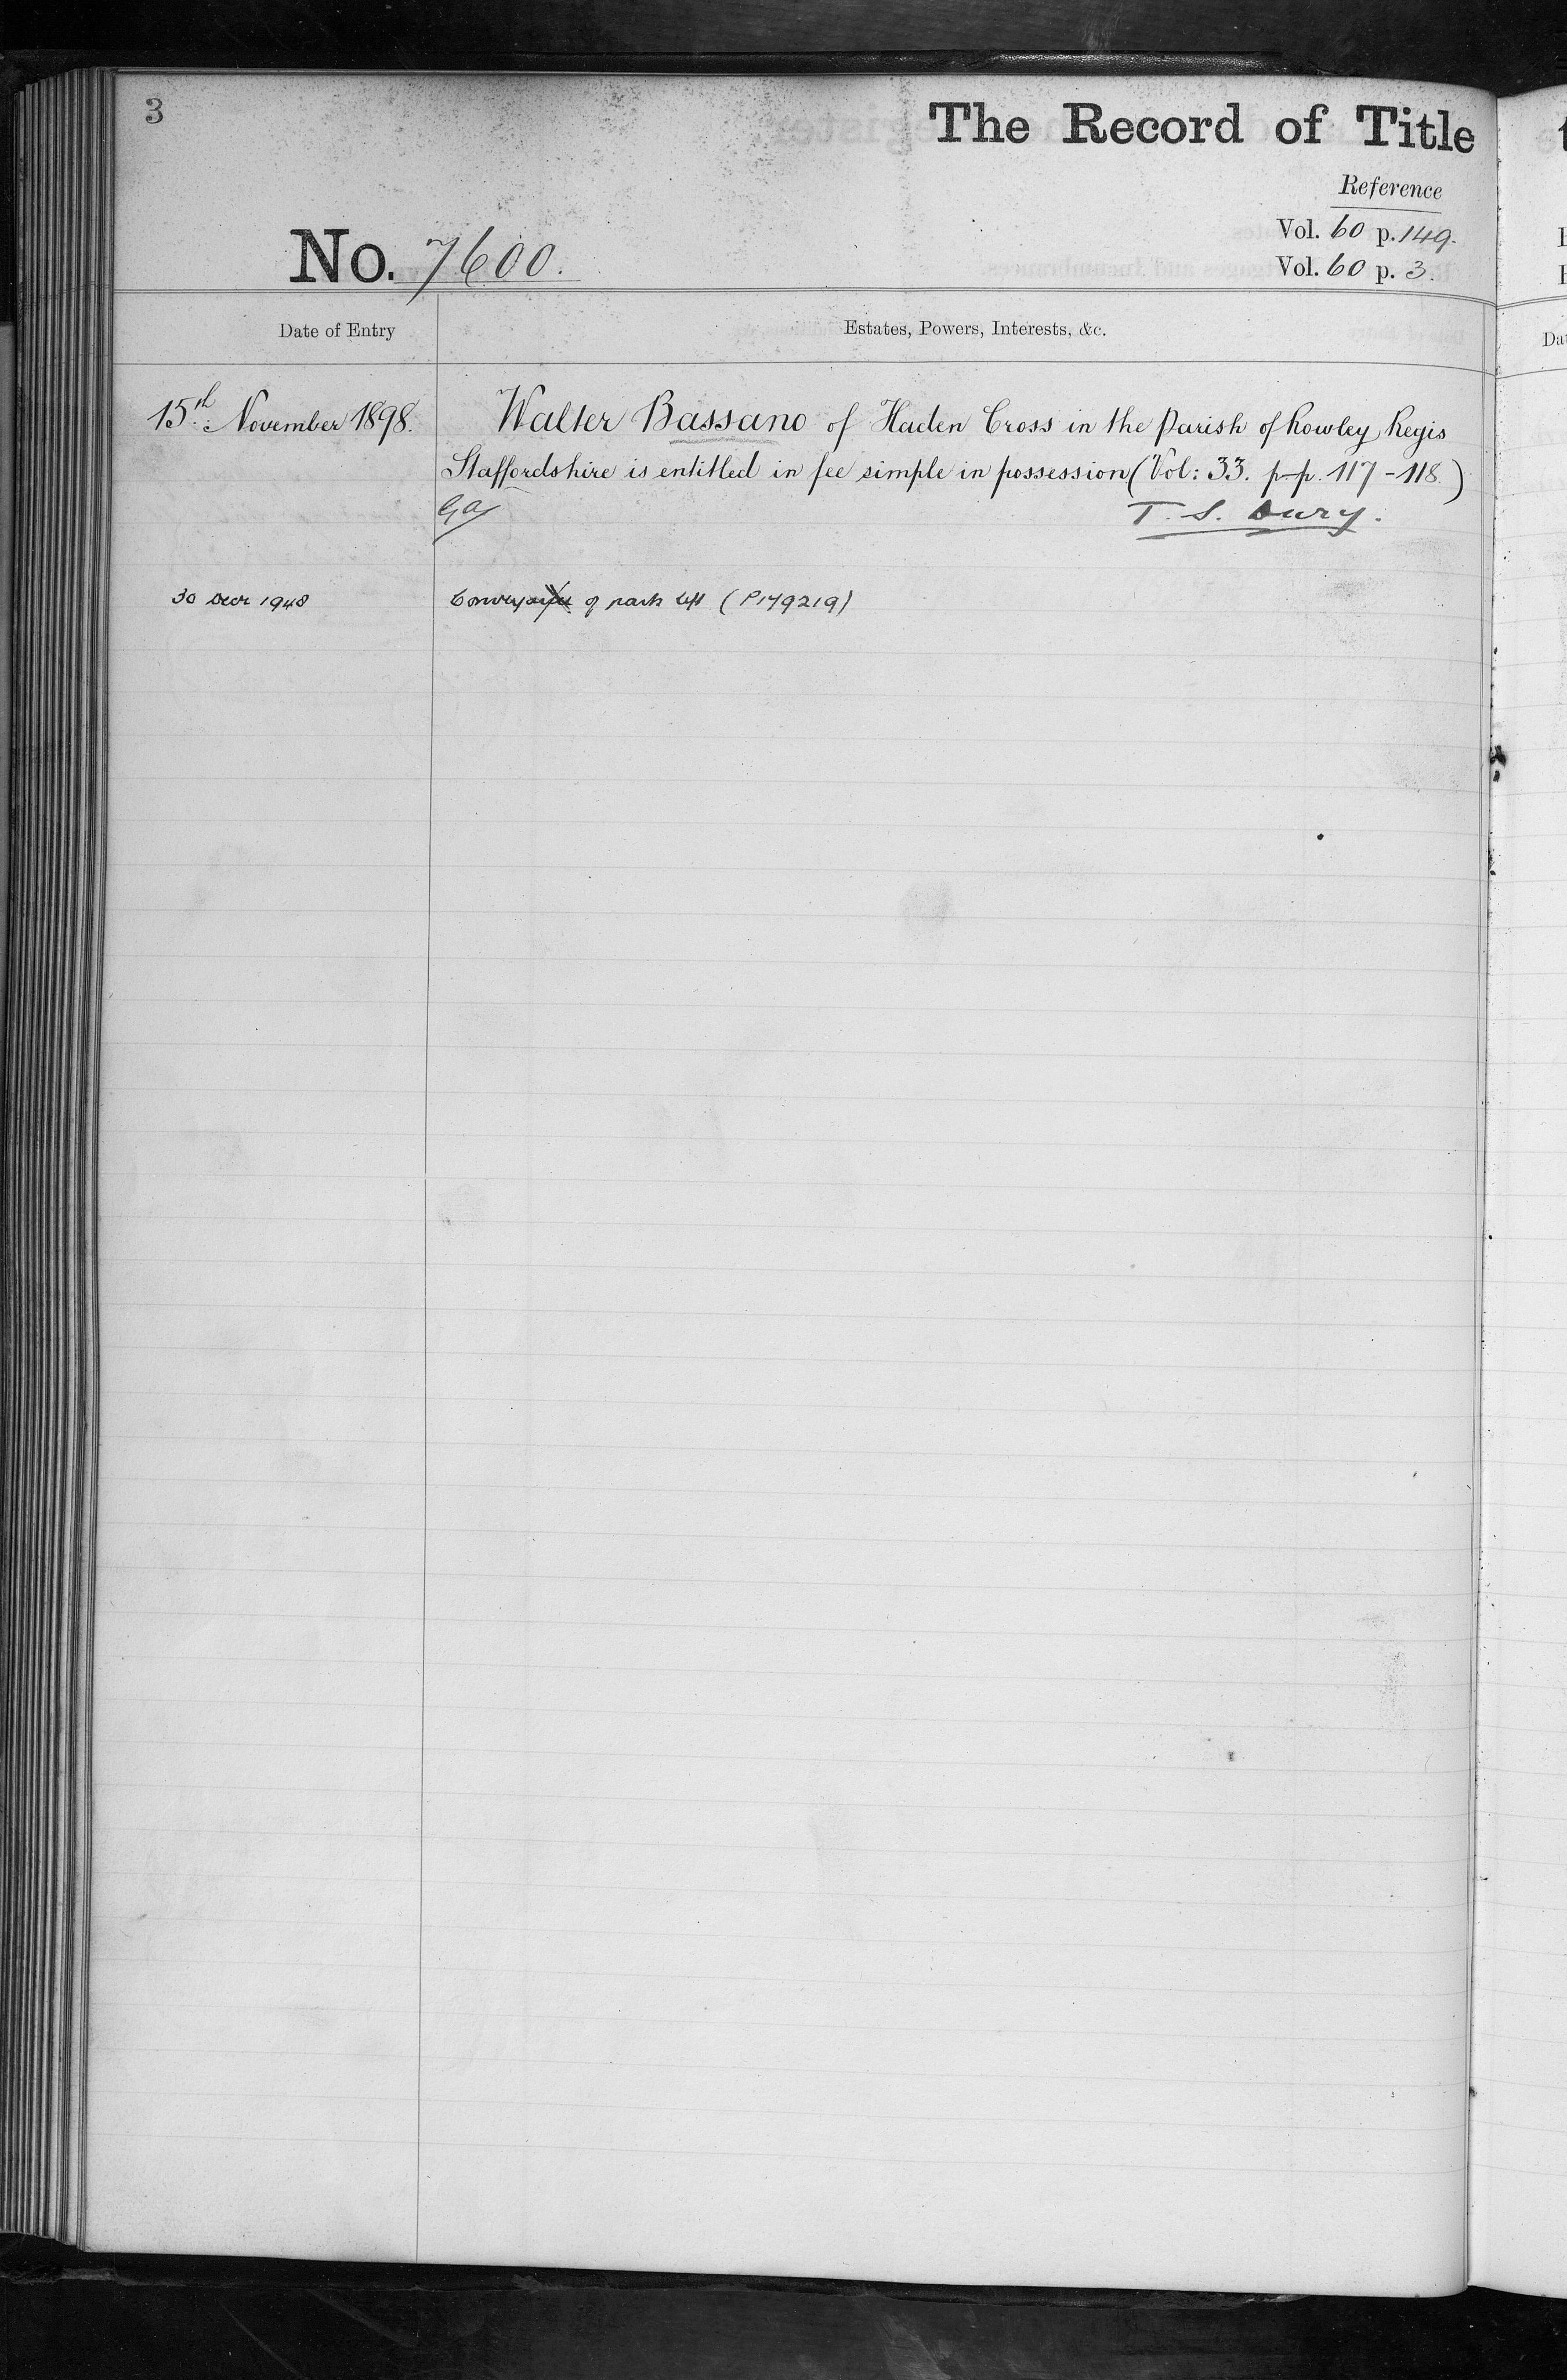 3
The Record of Title
Reference
Vol. 60 p. 149.
No. 7600.
Vol. 60 p. 3.
Date of Entry
Estates, Powers, Interests, &c.
15th November 1898. Walter Bassano of Haden Cross in the Parish of Rowley Regis
Staffordshire is entitled in fee simple in possession (Vol: 33. p.p. 117-118.)
T. S. Dury.
30 Decr 1948 Conveyance of part left (P179219)